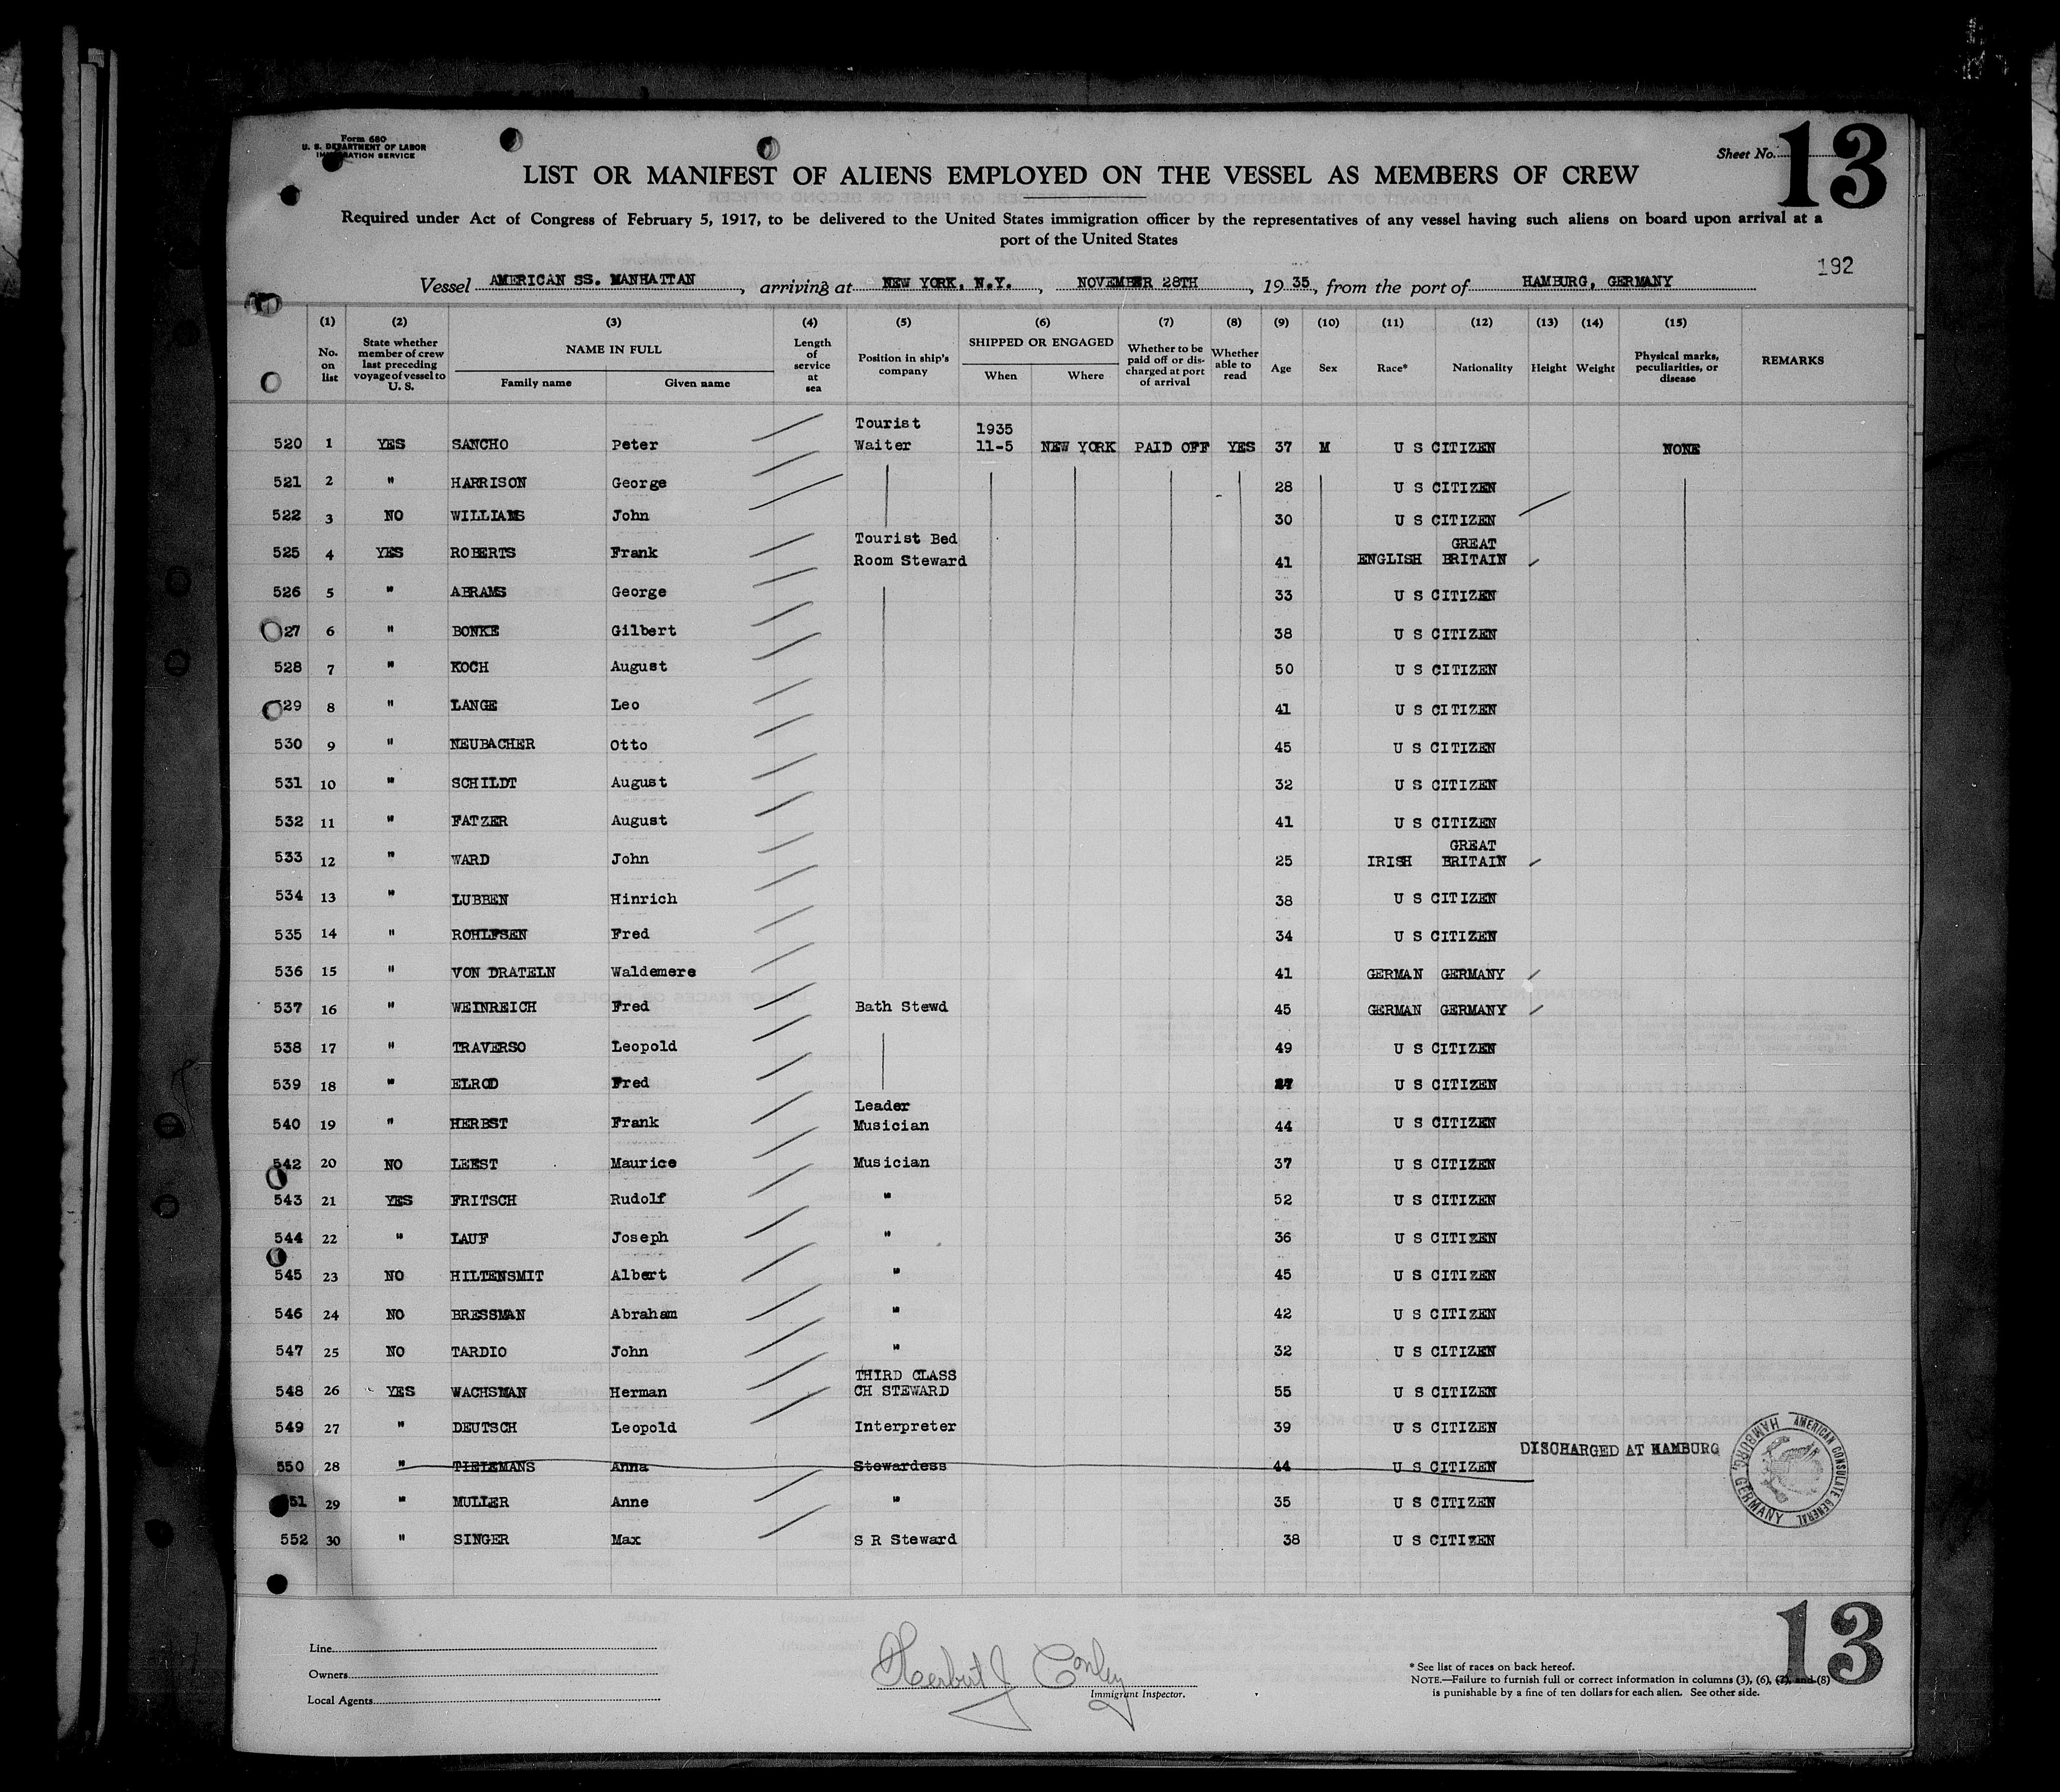 Form 680
U. S. DEPARTMENT OF LABOR
IMMIGRATION SERVICE
Sheet No. 13
LIST OR MANIFEST OF ALIENS EMPLOYED ON THE VESSEL AS MEMBERS OF CREW
Required under Act of Congress of February 5, 1917, to be delivered to the United States immigration officer by the representatives of any vessel having such aliens on board upon arrival at a
port of the United States
192
Vessel AMERICAN SS. MANHATTAN, arriving at NEW YORK, N.Y., NOVEMBER 28TH, 1935, from the port of HAMBURG, GERMANY
(1) (2) (3) (4) (5) (6) (7) (8) (9) (10) (11) (12) (13) (14) (15)
No. on list State whether member of crew last preceding voyage of vessel to U. S. NAME IN FULL Family name Given name Length of service at sea Position in ship's company SHIPPED OR ENGAGED When Where Whether to be paid off or discharged at port of arrival Whether able to read Age Sex Race* Nationality Height Weight Physical marks, peculiarities, or disease REMARKS
520 1 YES SANCHO Peter Tourist Waiter 1935 11-5 NEW YORK PAID OFF YES 37 M U S CITIZEN NONE
521 2 " HARRISON George 28 U S CITIZEN
522 3 NO WILLIAMS John 30 U S CITIZEN
525 4 YES ROBERTS Frank Tourist Bed Room Steward 41 ENGLISH GREAT BRITAIN
526 5 " ABRAMS George 33 U S CITIZEN
27 6 " BONKE Gilbert 38 U S CITIZEN
528 7 " KOCH August 50 U S CITIZEN
529 8 " LANGE Leo 41 U S CITIZEN
530 9 " NEUBACHER Otto 45 U S CITIZEN
531 10 " SCHILDT August 32 U S CITIZEN
532 11 " FATZER August 41 U S CITIZEN
533 12 " WARD John 25 IRISH GREAT BRITAIN
534 13 " LUBBEN Hinrich 38 U S CITIZEN
535 14 " ROHLFSEN Fred 34 U S CITIZEN
536 15 " VON DRATELN Waldemere 41 GERMAN GERMANY
537 16 " WEINREICH Fred Bath Stewd 45 GERMAN GERMANY
538 17 " TRAVERSO Leopold 49 U S CITIZEN
539 18 " ELROD Fred U S CITIZEN
540 19 " HERBST Frank Leader Musician 44 U S CITIZEN
542 20 NO LEEST Maurice Musician 37 U S CITIZEN
543 21 YES FRITSCH Rudolf " 52 U S CITIZEN
544 22 " LAUF Joseph " 36 U S CITIZEN
545 23 NO HILTENSMIT Albert " 45 U S CITIZEN
546 24 NO BRESSMAN Abraham " 42 U S CITIZEN
547 25 NO TARDIO John " 32 U S CITIZEN
548 26 YES WACHSMAN Herman THIRD CLASS CH STEWARD 55 U S CITIZEN
549 27 " DEUTSCH Leopold Interpreter 39 U S CITIZEN
550 28 " TIELEMANS Anna Stewardess 44 U S CITIZEN DISCHARGED AT HAMBURG
51 29 " MULLER Anne " 35 U S CITIZEN
552 30 " SINGER Max S R Steward 38 U S CITIZEN
AMERICAN CONSULATE GENERAL HAMBURG, GERMANY
Line
Owners
Local Agents
Herbert J Conley
Immigrant Inspector.
* See list of races on back hereof.
NOTE.—Failure to furnish full or correct information in columns (3), (6), (7), and (8)
is punishable by a fine of ten dollars for each alien. See other side.
13